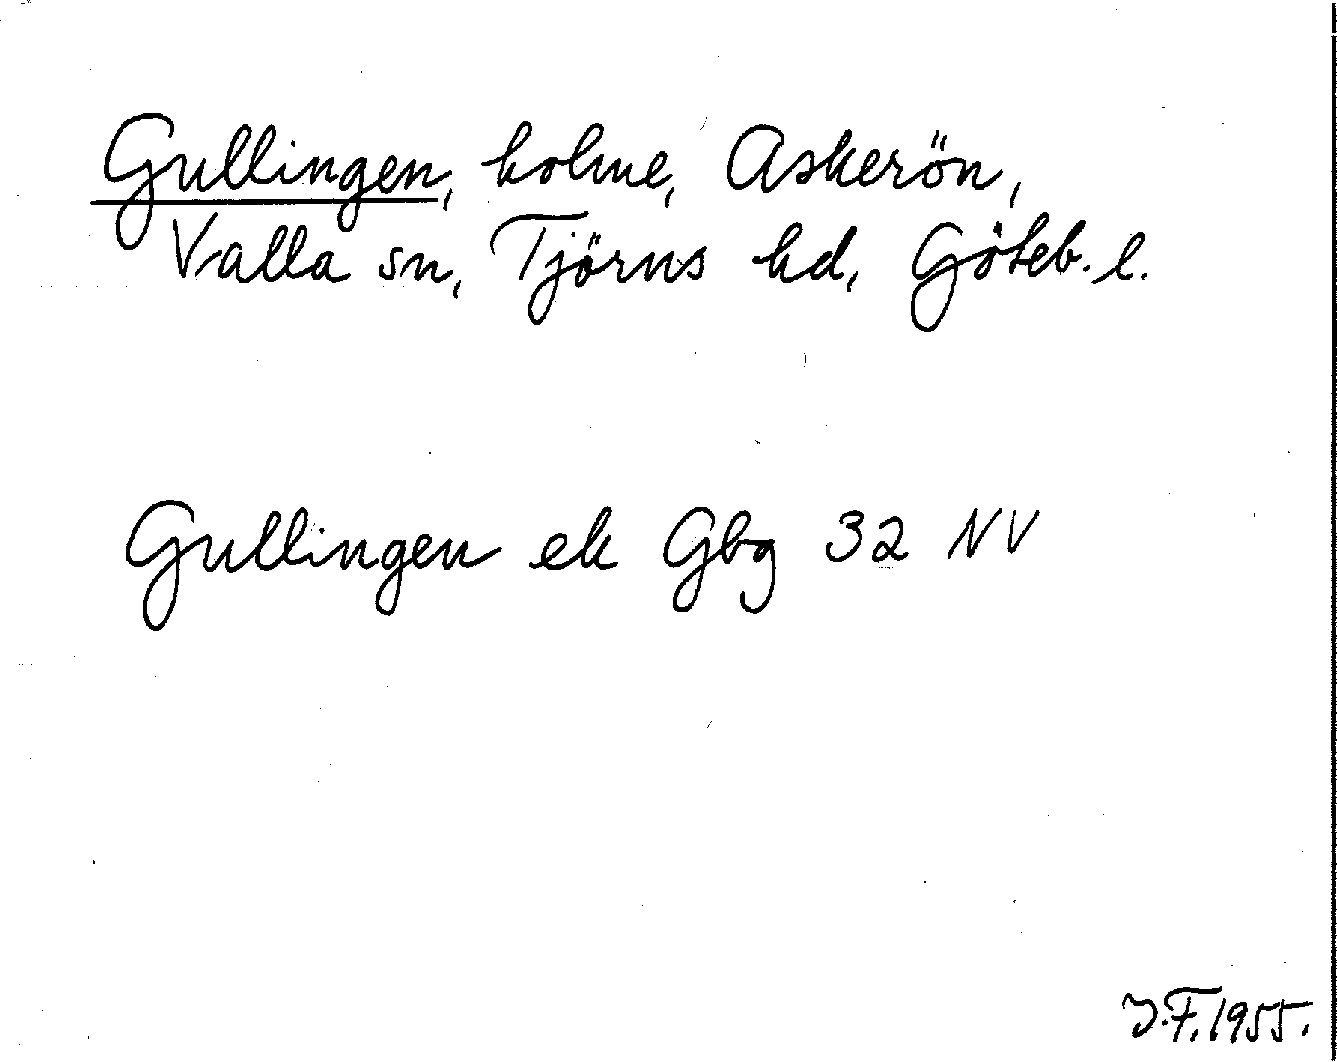 Gullingen, holme, Askerön,
Valla sn, Tjörns hd, Göteb. l.
Gullingen ek Gbg 32 NV
J.F. 1955.